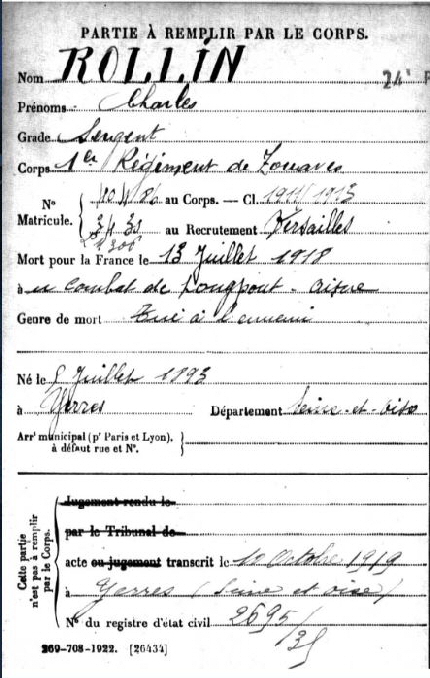 PARTIE À REMPLIR PAR LE CORPS.
Nom ROLLIN
24
Prénoms Charles
Grade Sergent
Corps 1er Régiment de Zouaves
N° Matricule. au Corps. — Cl. 1911/1913
3431 au Recrutement Versailles
Mort pour la France le 13 Juillet 1918
à u Combat de Longpont - Aisne
Genre de mort Tué à l'ennemi
Né le Juillet 1893
à Yerres Département Seine-et-Oise
Arrt municipal (pr Paris et Lyon), à défaut rue et N°.
Cette partie n'est pas à remplir par le Corps.
Jugement rendu le
par le Tribunal de
acte ou jugement transcrit le 10 Octobre 1919
à Yerres (Seine et oise)
N° du registre d'état civil 2695/35
269-708-1922. [26434]